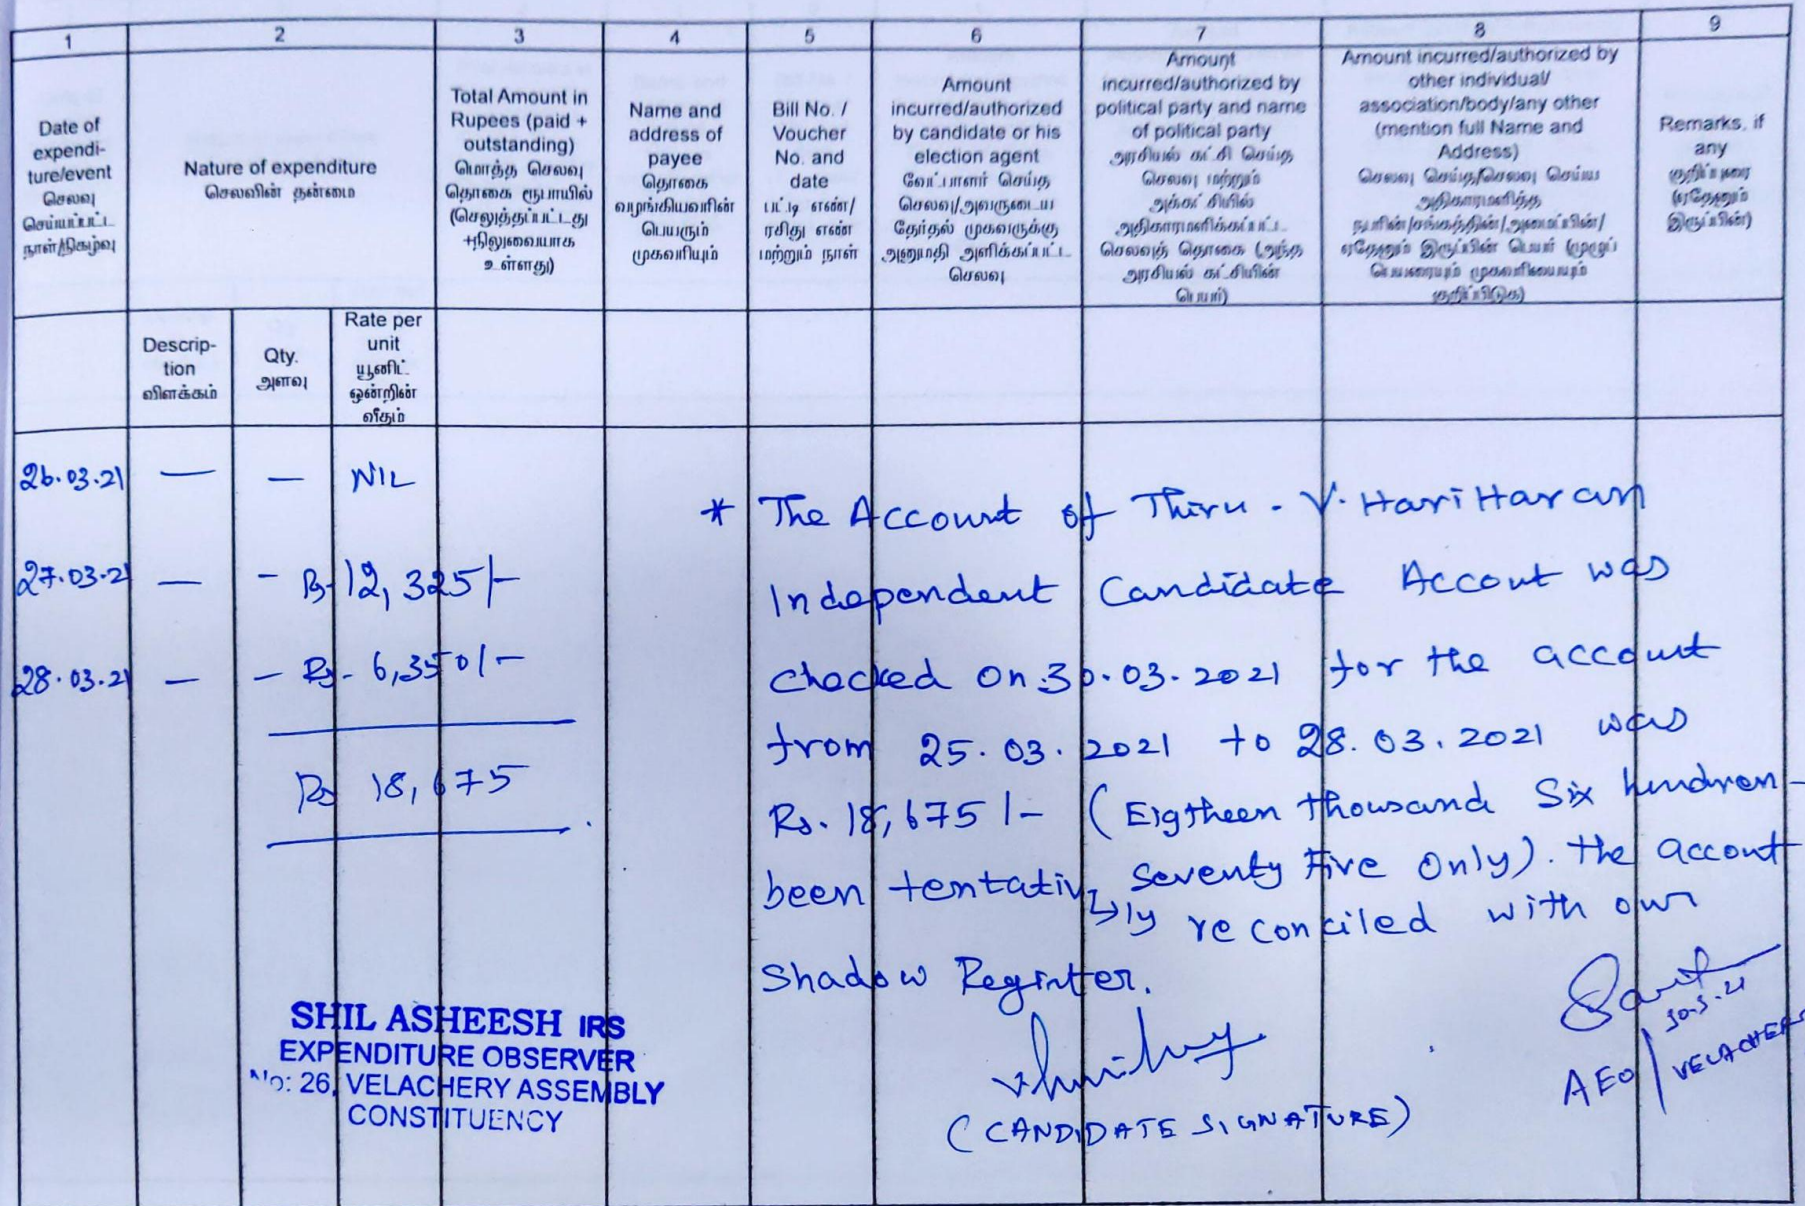 1 2 3 4 5 6 7 8 9
Date of
expendi-
ture/event
செலவு
செய்யப்பட்ட
நாள்/நிகழ்வு
Nature of expenditure
செலவின் தன்மை
Total Amount in
Rupees (paid +
outstanding)
மொத்த செலவு
தொகை ரூபாயில்
(செலுத்தப்பட்டது
+நிலுவையாக
உள்ளது)
Name and
address of
payee
தொகை
வழங்கியவரின்
பெயரும்
முகவரியும்
Bill No. /
Voucher
No. and
date
பட்டி எண்/
ரசிது எண்
மற்றும் நாள்
Amount
incurred/authorized
by candidate or his
election agent
வேட்பாளர் செய்த
செலவு/அவருடைய
தேர்தல் முகவருக்கு
அனுமதி அளிக்கப்பட்ட
செலவு
Amount
incurred/authorized by
political party and name
of political party
அரசியல் கட்சி செய்த
செலவு மற்றும்
அக்கட்சியில்
அதிகாரமளிக்கப்பட்ட
செலவுத் தொகை (அந்த
அரசியல் கட்சியின்
பெயர்)
Amount incurred/authorized by
other individual/
association/body/any other
(mention full Name and
Address)
செலவு செய்த/செலவு செய்ய
அதிகாரமளித்த
நபரின்/சங்கத்தின்/அமைப்பின்/
ஏதேனும் இருப்பின் பெயர் (முழுப்
பெயரையும் முகவரியையும்
குறிப்பிடுக)
Remarks, if
any
குறிப்புரை
(ஏதேனும்
இருப்பின்)
Descrip-
tion
விளக்கம்
Qty.
அளவு
Rate per
unit
யூனிட்
ஒன்றின்
வீதம்
26.03.21 — — NIL
27.03.21 — - Rs 12,325/-
28.03.21 — — Rs. 6,350/-
Rs 18,675
* The Account of Thiru. V. HariHaran
Independent Candidate Accout was
checked on 30.03.2021 for the account
from 25.03.2021 to 28.03.2021 was
Rs. 18,675/- (Eigtheen thousand Six hundren-
Seventy Five only). the accout
been tentatively reconciled with our
Shadow Register.
SHIL ASHEESH IRS
EXPENDITURE OBSERVER
No: 26, VELACHERY ASSEMBLY
CONSTITUENCY
(CANDIDATE SIGNATURE)
30.3.21
AEO/VELACHERY